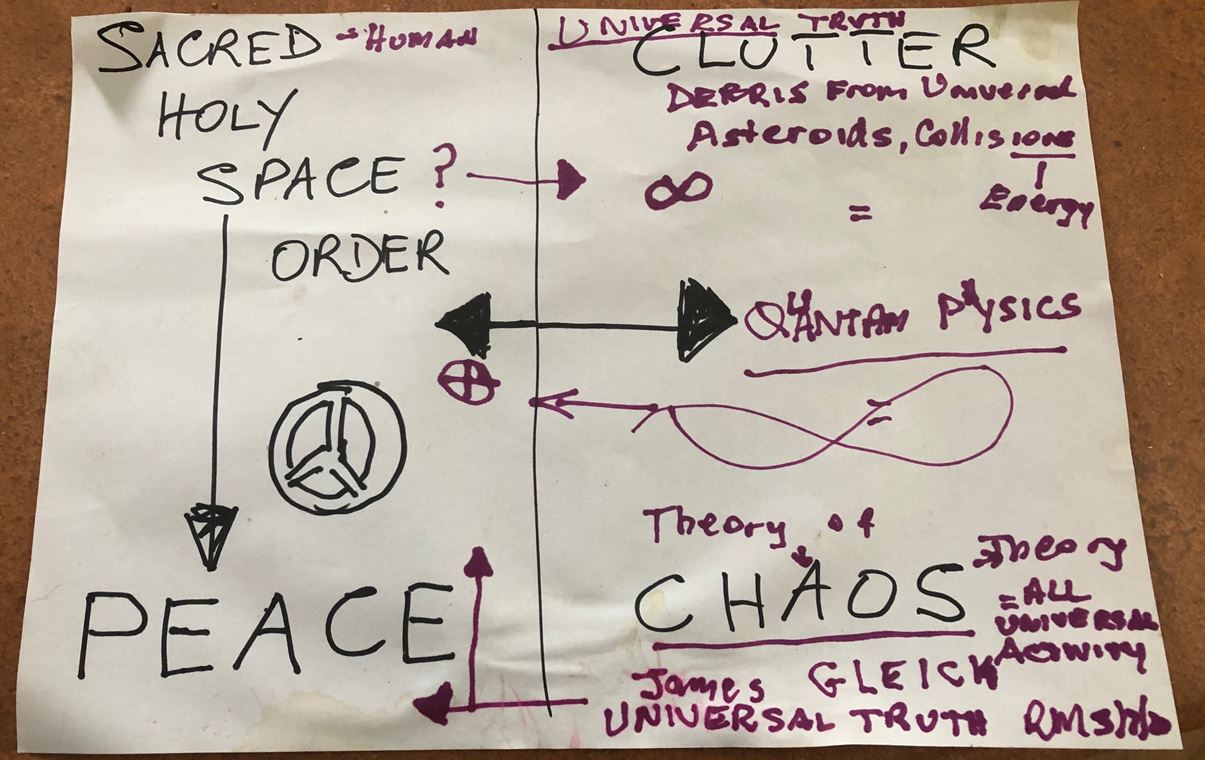 SACRED = HUMAN
HOLY
SPACE ?
ORDER
PEACE
UNIVERSAL TRUTH
CLUTTER
DEBRIS From Universal
Asteroids, Collisions
∞ = Energy
QUANTAM PHYSICS
=
Theory of
CHAOS = Theory
= ALL
UNIVERSAL
Activity
James GLEICK
UNIVERSAL TRUTH